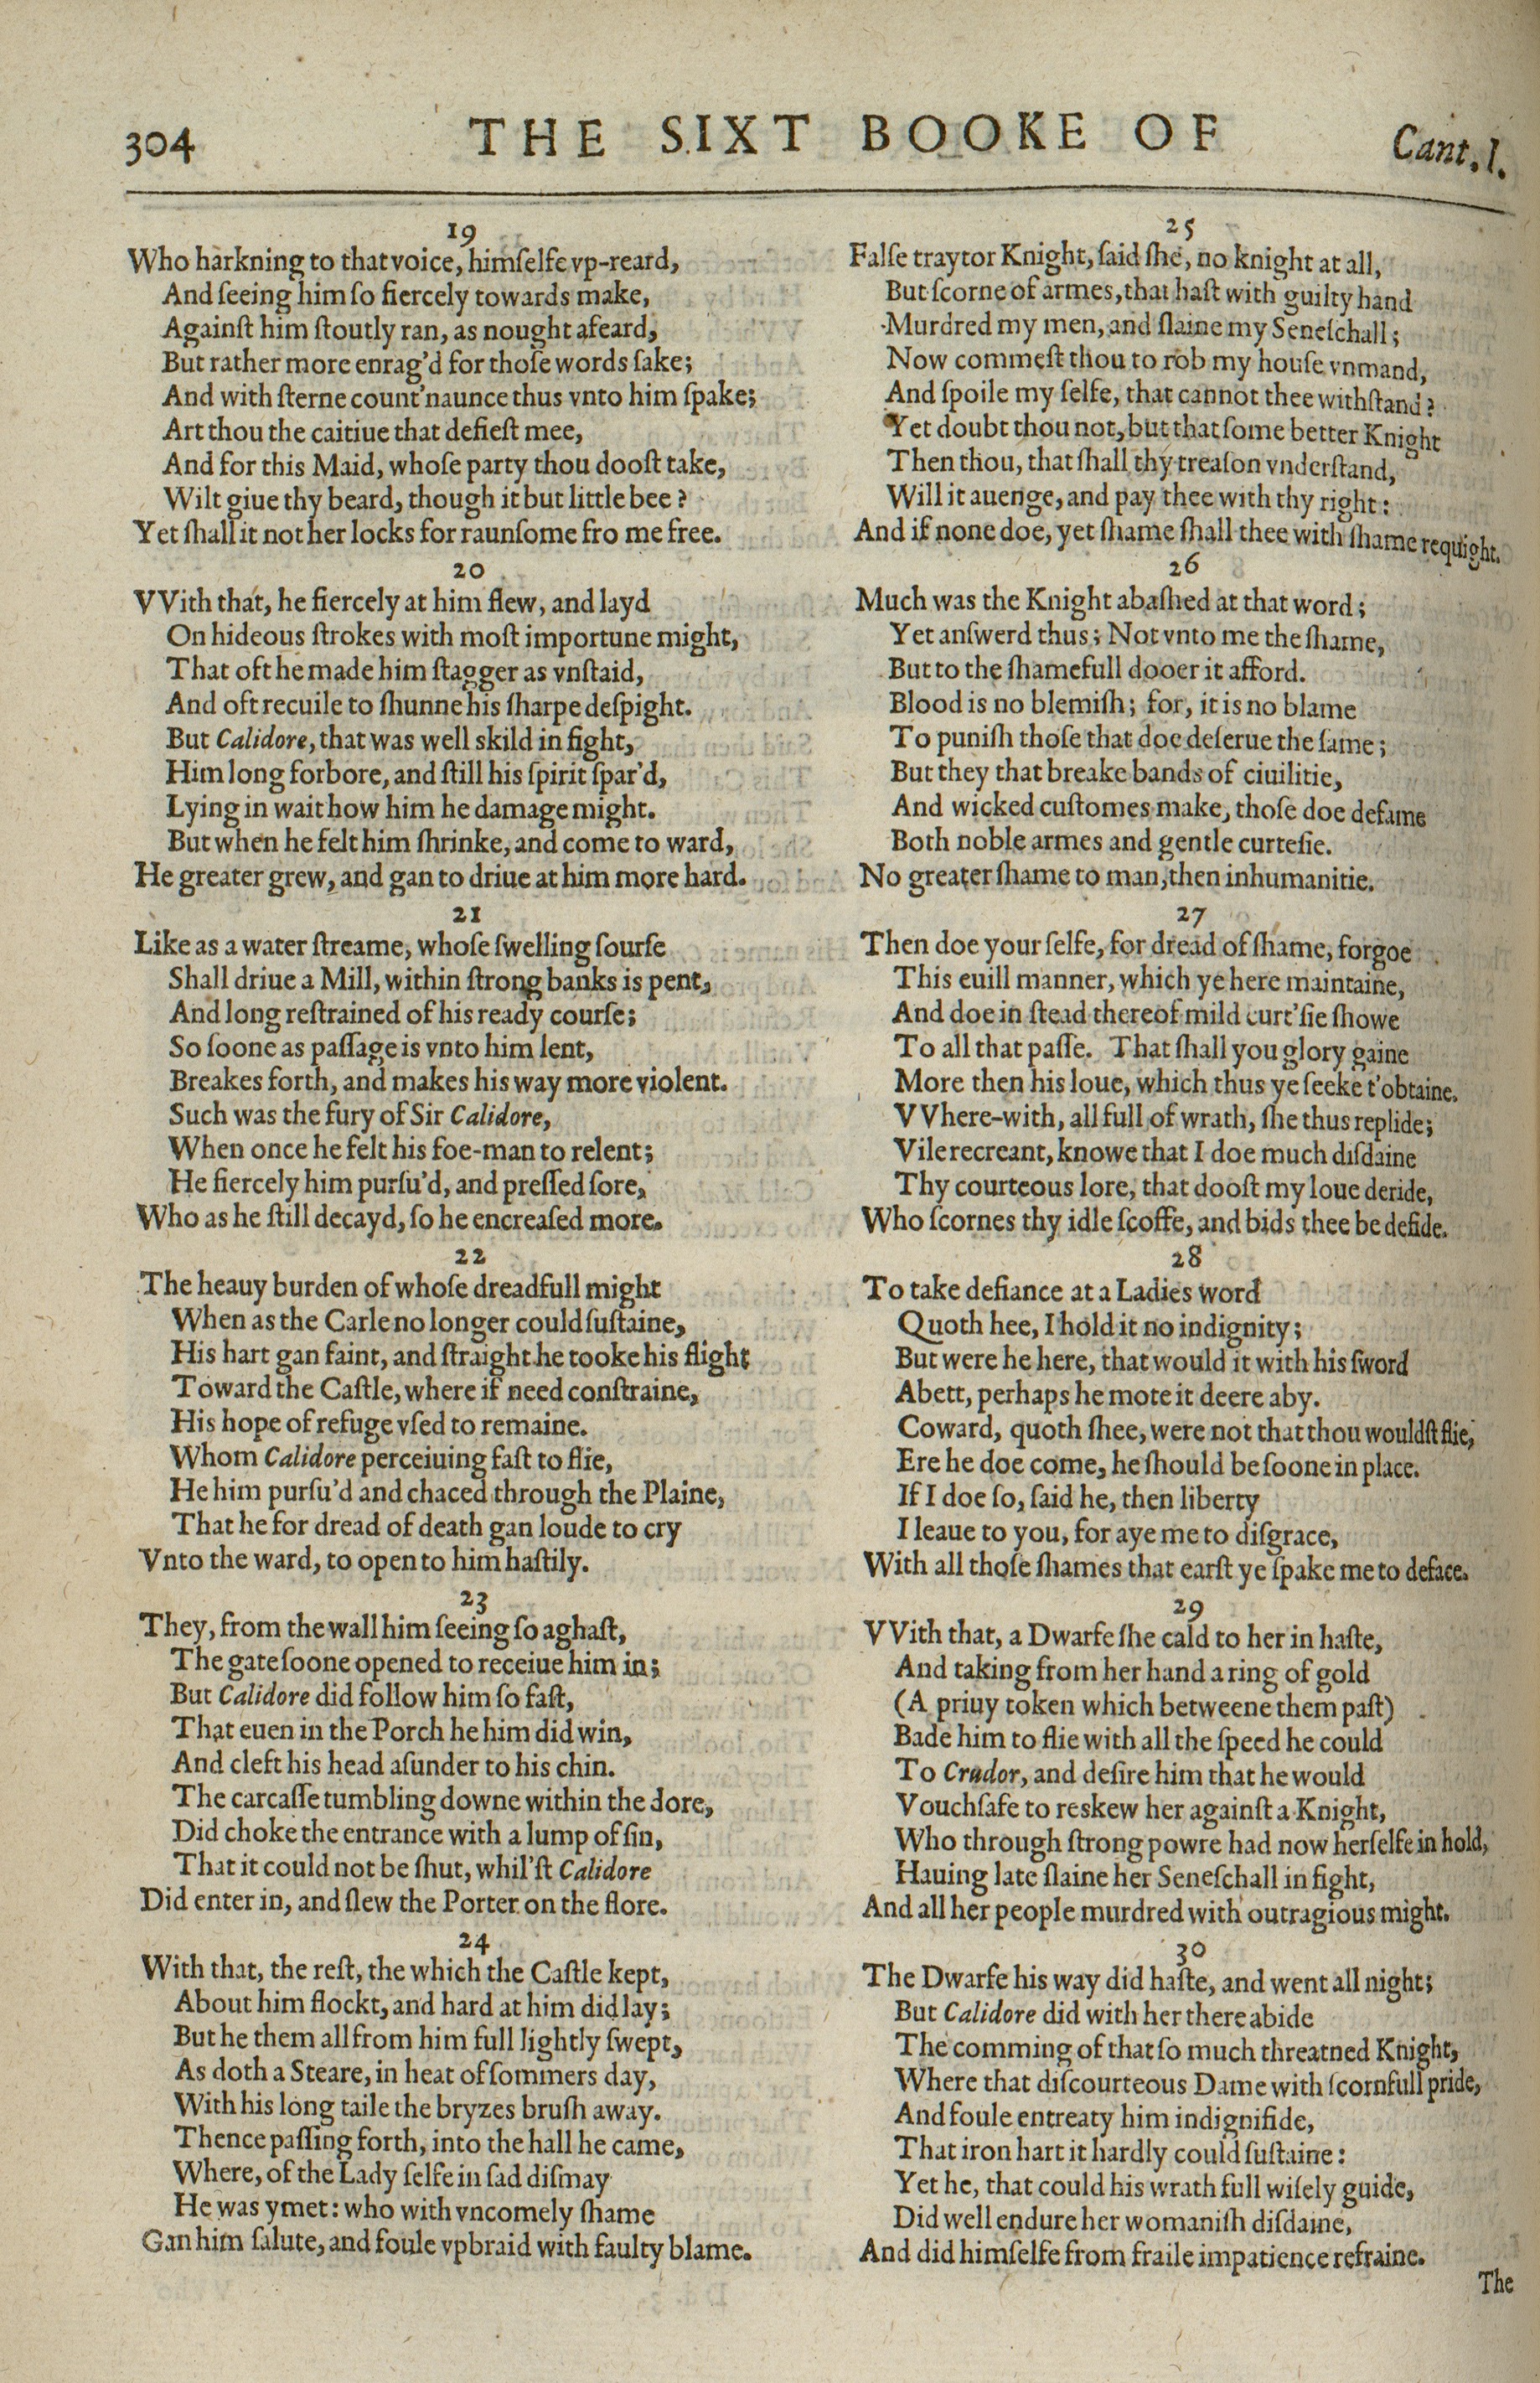 304 THE SIXT BOOKE OF Cant. I.
19
Who harkning to that voice, himſelfe vp-reard,
And ſeeing him ſo fiercely towards make,
Againſt him ſtoutly ran, as nought afeard,
But rather more enrag'd for thoſe words ſake;
And with ſterne count'naunce thus vnto him ſpake;
Art thou the caitiue that defieſt mee,
And for this Maid, whoſe party thou dooſt take,
Wilt giue thy beard, though it but little bee?
Yet ſhall it not her locks for raunſome fro me free.
20
VVith that, he fiercely at him flew, and layd
On hideous ſtrokes with moſt importune might,
That oft he made him ſtagger as vnſtaid,
And oft recuile to ſhunne his ſharpe deſpight.
But Calidore, that was well skild in fight,
Him long forbore, and ſtill his ſpirit ſpar'd,
Lying in wait how him he damage might.
But when he felt him ſhrinke, and come to ward,
He greater grew, and gan to driue at him more hard.
21
Like as a water ſtreame, whoſe ſwelling ſourſe
Shall driue a Mill, within ſtrong banks is pent,
And long reſtrained of his ready courſe;
So ſoone as paſſage is vnto him lent,
Breakes forth, and makes his way more violent.
Such was the fury of Sir Calidore,
When once he felt his foe-man to relent;
He fiercely him purſu'd, and preſſed ſore,
Who as he ſtill decayd, ſo he encreaſed more.
22
The heauy burden of whoſe dreadfull might
When as the Carle no longer could ſuſtaine,
His hart gan faint, and ſtraight he tooke his flight
Toward the Caſtle, where if need conſtraine,
His hope of refuge vſed to remaine.
Whom Calidore perceiuing faſt to flie,
He him purſu'd and chaced through the Plaine,
That he for dread of death gan loude to cry
Vnto the ward, to open to him haſtily.
23
They, from the wall him ſeeing ſo aghaſt,
The gate ſoone opened to receiue him in;
But Calidore did follow him ſo faſt,
That euen in the Porch he him did win,
And cleft his head aſunder to his chin.
The carcaſſe tumbling downe within the dore,
Did choke the entrance with a lump of ſin,
That it could not be ſhut, whil'ſt Calidore
Did enter in, and ſlew the Porter on the flore.
24
With that, the reſt, the which the Caſtle kept,
About him flockt, and hard at him did lay;
But he them all from him full lightly ſwept,
As doth a Steare, in heat of ſommers day,
With his long taile the bryzes bruſh away.
Thence paſſing forth, into the hall he came,
Where, of the Lady ſelfe in ſad diſmay
He was ymet: who with vncomely ſhame
Gan him ſalute, and foule vpbraid with faulty blame.
25
Falſe traytor Knight, ſaid ſhe, no knight at all,
But ſcorne of armes, that haſt with guilty hand
Murdred my men, and ſlaine my Seneſchall;
Now commeſt thou to rob my houſe vnmand,
And ſpoile my ſelfe, that cannot thee withſtand?
Yet doubt thou not, but that ſome better Knight
Then thou, that ſhall thy treaſon vnderſtand,
Will it auenge, and pay thee with thy right:
And if none doe, yet ſhame ſhall thee with ſhame requight.
26
Much was the Knight abaſhed at that word;
Yet anſwerd thus; Not vnto me the ſhame,
But to the ſhamefull dooer it afford.
Blood is no blemiſh; for, it is no blame
To puniſh thoſe that doe deſerue the ſame;
But they that breake bands of ciuilitie,
And wicked cuſtomes make, thoſe doe defame
Both noble armes and gentle curteſie.
No greater ſhame to man, then inhumanitie.
27
Then doe your ſelfe, for dread of ſhame, forgoe
This euill manner, which ye here maintaine,
And doe in ſtead thereof mild curt'ſie ſhowe
To all that paſſe. That ſhall you glory gaine
More then his loue, which thus ye ſeeke t'obtaine.
VVhere-with, all full of wrath, ſhe thus replide;
Vile recreant, knowe that I doe much diſdaine
Thy courteous lore, that dooſt my loue deride,
Who ſcornes thy idle ſcoffe, and bids thee be defide.
28
To take defiance at a Ladies word
Quoth hee, I hold it no indignity;
But were he here, that would it with his ſword
Abett, perhaps he mote it deere aby.
Coward, quoth ſhee, were not that thou wouldſt flie,
Ere he doe come, he ſhould be ſoone in place.
If I doe ſo, ſaid he, then liberty
I leaue to you, for aye me to diſgrace,
With all thoſe ſhames that earſt ye ſpake me to deface.
29
VVith that, a Dwarfe ſhe cald to her in haſte,
And taking from her hand a ring of gold
(A priuy token which betweene them paſt)
Bade him to flie with all the ſpeed he could
To Crudor, and deſire him that he would
Vouchſafe to reskew her againſt a Knight,
Who through ſtrong powre had now herſelfe in hold,
Hauing late ſlaine her Seneſchall in fight,
And all her people murdred with outragious might.
30
The Dwarfe his way did haſte, and went all night;
But Calidore did with her there abide
The comming of that ſo much threatned Knight,
Where that diſcourteous Dame with ſcornfull pride,
And foule entreaty him indignifide,
That iron hart it hardly could ſuſtaine:
Yet he, that could his wrath full wiſely guide,
Did well endure her womaniſh diſdaine,
And did himſelfe from fraile impatience refraine.
The